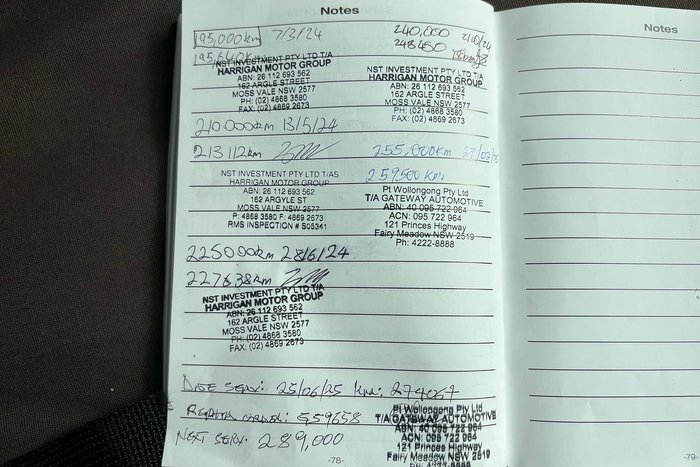 Notes
195,000km 7/3/24
NST INVESTMENT PTY LTD T/A
HARRIGAN MOTOR GROUP
ABN: 26 112 693 562
162 ARGLE STREET
MOSS VALE NSW 2577
PH: (02) 4868 3580
FAX: (02) 4869 2673
210000km 13/5/24
213112km
NST INVESTMENT PTY LTD T/AS
HARRIGAN MOTOR GROUP
ABN: 26 112 693 562
162 ARGYLE ST
MOSS VALE NSW 2577
P: 4868 3580 F: 4869 2673
RMS INSPECTION # S05341
225000km 28/6/24
227638km
NST INVESTMENT PTY LTD T/A
HARRIGAN MOTOR GROUP
ABN: 26 112 693 562
162 ARGLE STREET
MOSS VALE NSW 2577
PH: (02) 4868 3580
FAX: (02) 4869 2673
240,000 2/10/24
248450
NST INVESTMENT PTY LTD T/A
HARRIGAN MOTOR GROUP
ABN: 26 112 693 562
162 ARGLE STREET
MOSS VALE NSW 2577
PH: (02) 4868 3580
FAX: (02) 4869 2673
255,000km
259500 km
Pt Wollongong Pty Ltd
T/A GATEWAY AUTOMOTIVE
ABN: 40 095 722 964
ACN: 095 722 964
121 Princes Highway
Fairy Meadow NSW 2519
Ph: 4222-8888
DATE SERV: 25/06/25 km: 274067
ORDER: 559658
NEXT SERV: 289,000
Pt Wollongong Pty Ltd
T/A GATEWAY AUTOMOTIVE
ABN: 40 095 722 964
ACN: 095 722 964
121 Princes Highway
Fairy Meadow NSW 2519
Ph: 4222-8888
-78-
Notes
-79-